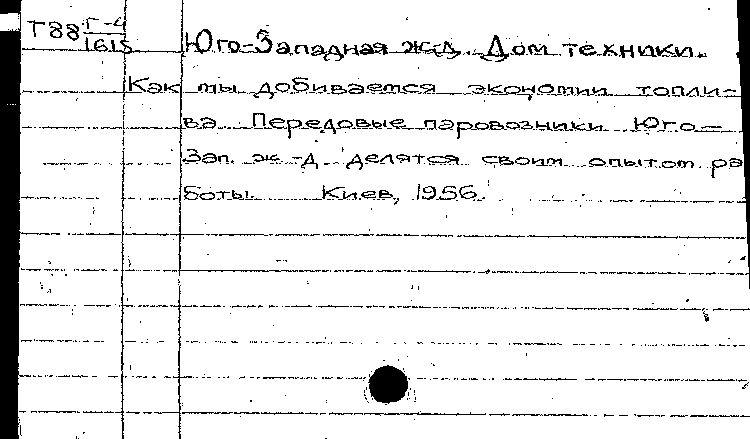 Т88 Г-4
1615
Юго-Западная ж-д. Дом техники.
Как мы добиваемся экономии топли-
ва. Передовые паровозники Юго-
Зап. ж-д делятся своим опытом ра
боты. Киев, 1956.